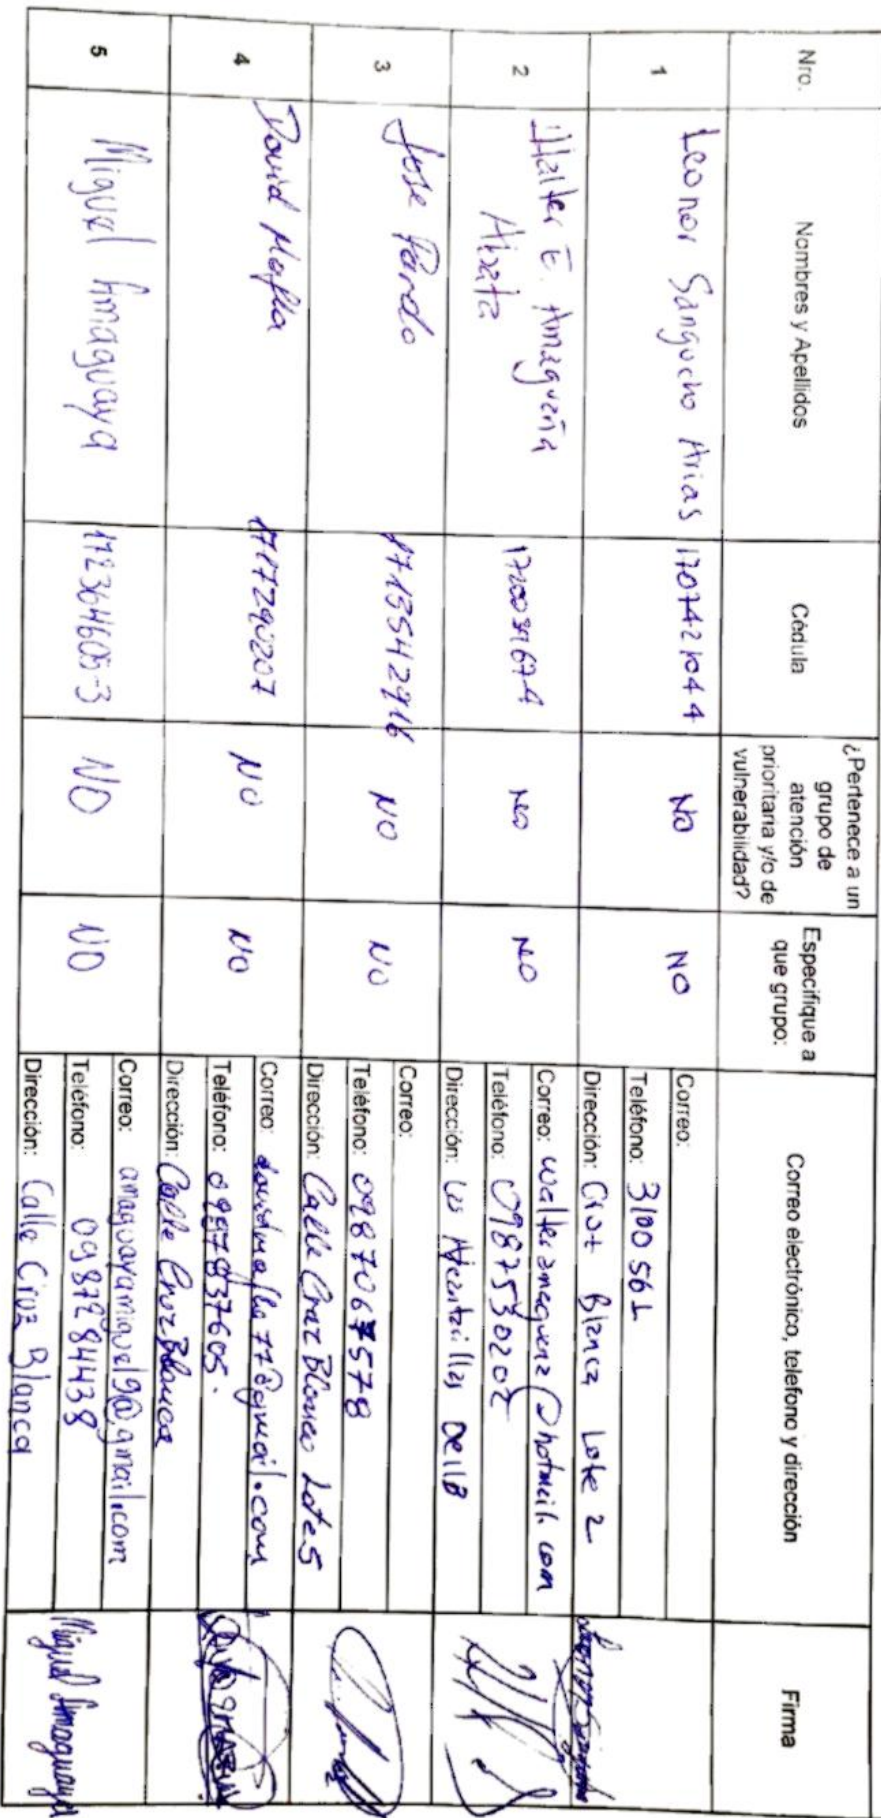 Nro.
Nombres y Apellidos
Cédula
¿Pertenece a un
grupo de
atención
prioritaria y/o de
vulnerabilidad?
Especifique a
que grupo:
Correo electrónico, telefono y dirección
Firma
1
Leonor Sangucho Arias
1707421044
NO
NO
Correo:
Teléfono: 3100561
Dirección: Cruz Blanca Lote 2
2
Walter E. Amaguaña
NO
NO
Correo:
Teléfono: 0987530202
Dirección:
3
Jose Pardo
1713542916
NO
NO
Correo:
Teléfono: 0987067578
Dirección: Calle Cruz Blanca Lote 5
4
David Mafla
1717290207
NO
NO
Correo: davidmafla77@gmail.com
Teléfono:
Dirección: Calle Cruz Blanca
5
Miguel Amaguaya
172364605-3
NO
NO
Correo: amaguayamiguel9@gmail.com
Teléfono: 0987284438
Dirección: Calle Cruz Blanca
Miguel Amaguaya